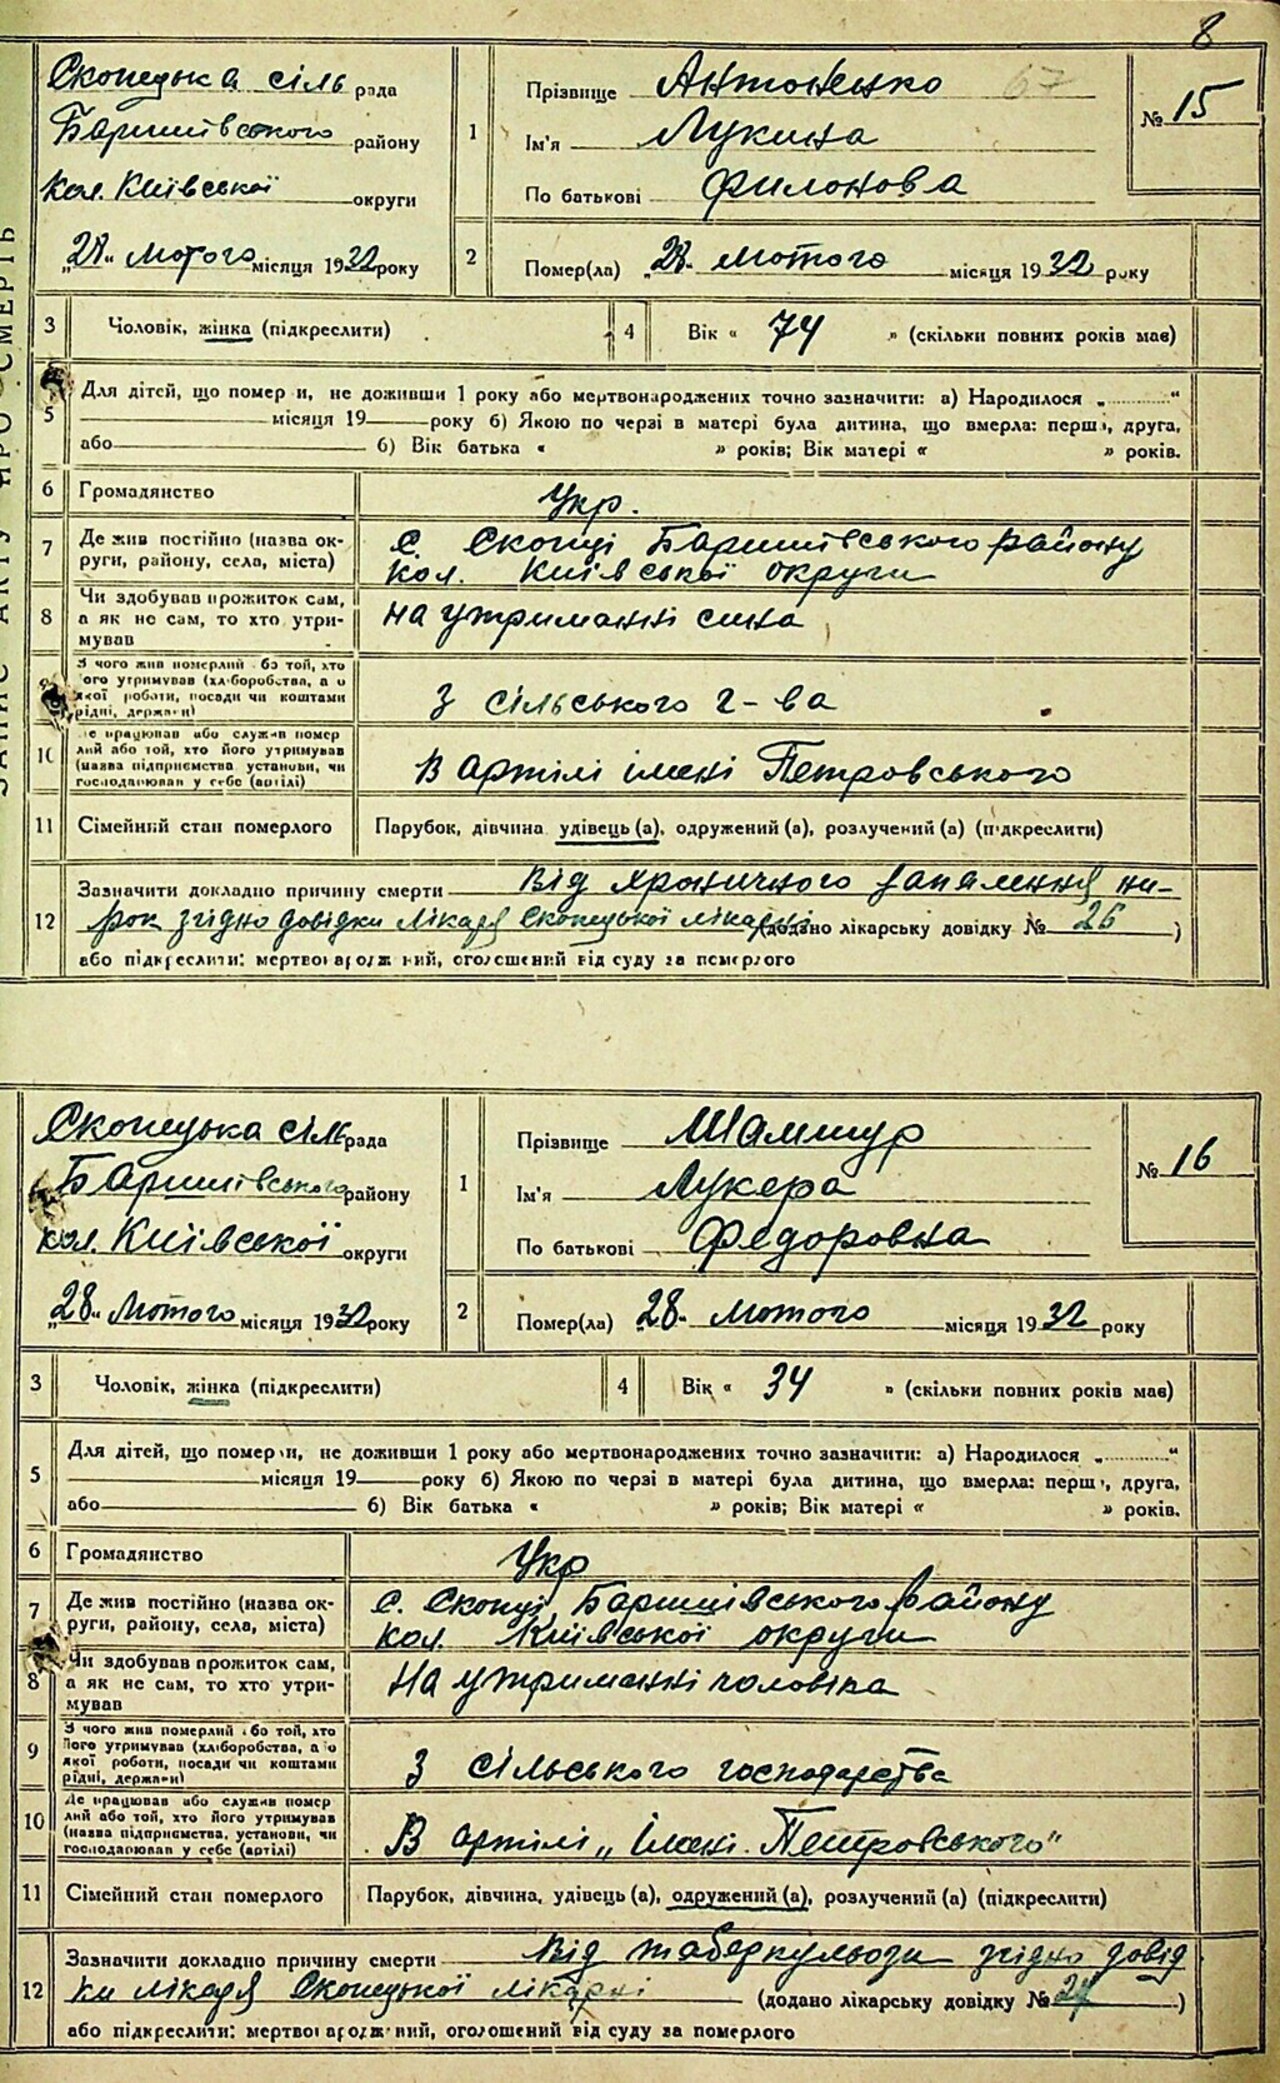 8
ЗАПИС АКТУ ПРО СМЕРТЬ
Скопецька сіль рада
Баришівського району
кол. Київської округи
„28“ Лютого місяця 1932 року
1
Прізвище Антоненко 67
Ім'я Лукина
По батькові Филонова
№ 15
2
Помер(ла) „28“ лютого місяця 1932 року
3 Чоловік, жінка (підкреслити)
4 Вік « 74 » (скільки повних років має)
5 Для дітей, що помер и, не доживши 1 року або мертвонароджених точно зазначити: а) Народилося „..........“
місяця 19 року б) Якою по черзі в матері була дитина, що вмерла: перш, друга,
або б) Вік батька « » років; Вік матері « » років.
6 Громадянство Укр.
7 Де жив постійно (назва ок-
руги, району, села, міста)
с. Скопці Баришівського району
кол. Київської округи
8 Чи здобував прожиток сам,
а як не сам, то хто утри-
мував
на утриманні сина
9 З чого жив померлий або той, хто
його утримував (хліборобства, а о
якої роботи, посади чи коштами
рідні, держави)
З сільського г-ва
10 Де працював або служив помер
лий або той, хто його утримував
(назва підприємства установи, чи
господарював у себе (артілі)
В артілі імені Петровського
11 Сімейний стан померлого Парубок, дівчина, удівець (а), одружений (а), розлучений (а) (підкреслити)
12 Зазначити докладно причину смерти Від хроничного запалення ни-
рок згідно довідки лікаря Скопецької лікарні (додано лікарську довідку № 26 )
або підкреслити: мертвонароджений, оголошений від суду за померлого
Скопецька сіль рада
Баришівського району
кол. Київської округи
„28“ Лютого місяця 1932 року
1
Прізвище Шамшур
Ім'я Лукера
По батькові Федоровна
№ 16
2
Помер(ла) „28“ лютого місяця 1932 року
3 Чоловік, жінка (підкреслити)
4 Вік « 34 » (скільки повних років має)
5 Для дітей, що помер и, не доживши 1 року або мертвонароджених точно зазначити: а) Народилося „..........“
місяця 19 року б) Якою по черзі в матері була дитина, що вмерла: перш, друга,
або б) Вік батька « » років; Вік матері « » років.
6 Громадянство Укр
7 Де жив постійно (назва ок-
руги, району, села, міста)
с. Скопці, Баришівського району
кол. Київської округи
8 Чи здобував прожиток сам,
а як не сам, то хто утри-
мував
На утриманні чоловіка
9 З чого жив померлий або той, хто
його утримував (хліборобства, а о
якої роботи, посади чи коштами
рідні, держави)
З сільського господарства
10 Де працював або служив помер
лий або той, хто його утримував
(назва підприємства, установи, чи
господарював у себе (артілі)
В артілі „Імені Петровського“
11 Сімейний стан померлого Парубок, дівчина, удівець (а), одружений (а), розлучений (а) (підкреслити)
12 Зазначити докладно причину смерти Від таберкульози згідно довід
ки лікаря Скопецької лікарні (додано лікарську довідку № 27 )
або підкреслити: мертвонароджений, оголошений від суду за померлого